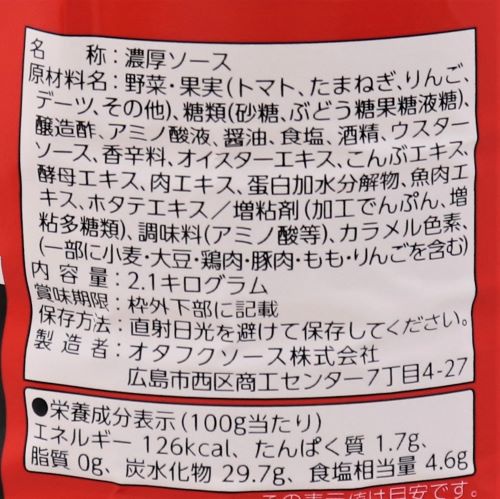 名　　称：濃厚ソース
原材料名：野菜・果実(トマト、たまねぎ、りんご、
デーツ、その他)、糖類(砂糖、ぶどう糖果糖液糖)、
醸造酢、アミノ酸液、醤油、食塩、酒精、ウスター
ソース、香辛料、オイスターエキス、こんぶエキス、
酵母エキス、肉エキス、蛋白加水分解物、魚肉エ
キス、ホタテエキス／増粘剤(加工でんぷん、増
粘多糖類)、調味料(アミノ酸等)、カラメル色素、
(一部に小麦・大豆・鶏肉・豚肉・もも・りんごを含む)
内 容 量：2.1キログラム
賞味期限：枠外下部に記載
保存方法：直射日光を避けて保存してください。
製 造 者：オタフクソース株式会社
広島市西区商工センター7丁目4-27
●栄養成分表示(100g当たり)
エネルギー 126kcal、たんぱく質 1.7g、
脂質 0g、炭水化物 29.7g、食塩相当量 4.6g
この表示値は目安です。